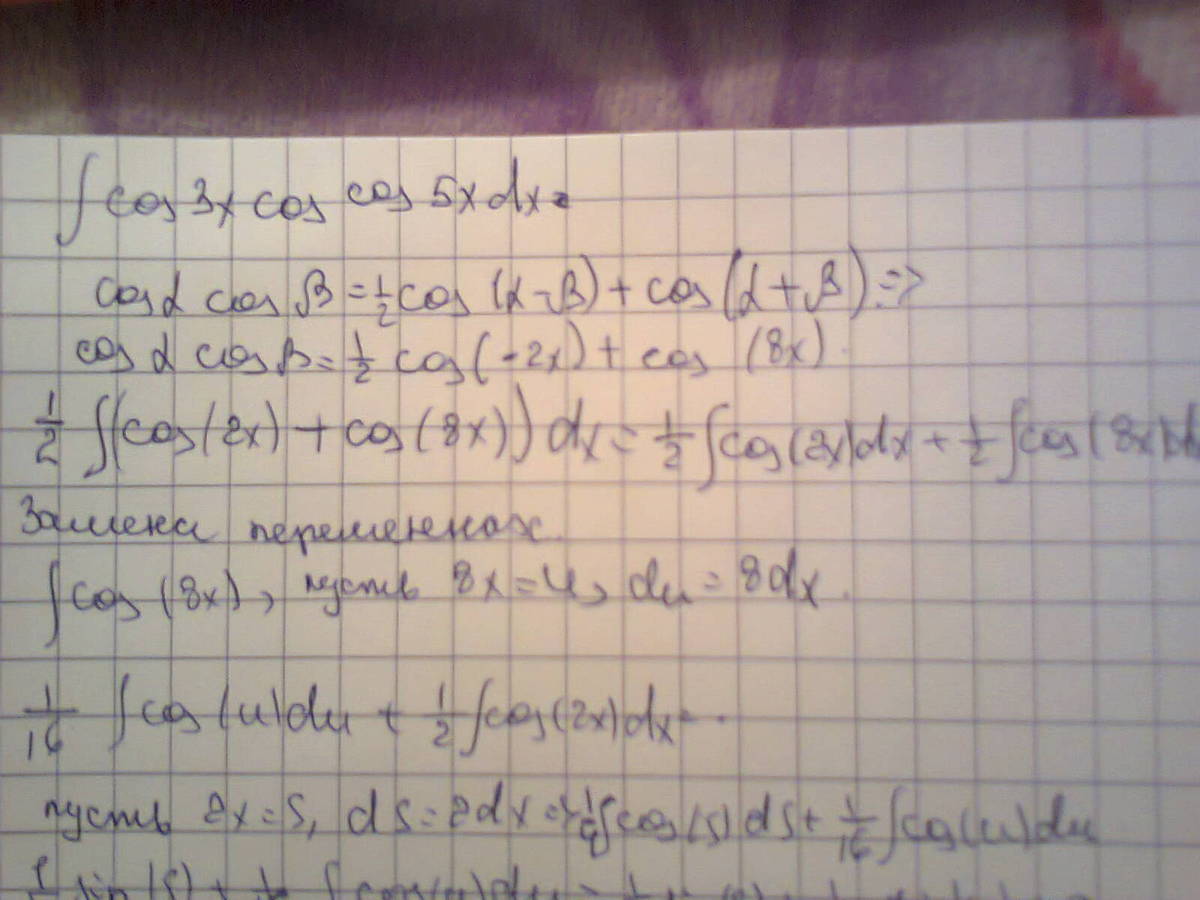 ∫ cos 3x cos cos 5x dx =
cos α cos β = 1/2 cos (α - β) + cos (α + β) =>
cos α cos β = 1/2 cos (-2x) + cos (8x).
1/2 ∫ (cos (2x) + cos (8x)) dx = 1/2 ∫ cos (2x) dx + 1/2 ∫ cos (8x)
Замена переменных.
∫ cos (8x), пусть 8x = u, du = 8dx.
1/16 ∫ cos (u) du + 1/2 ∫ cos (2x) dx =
пусть 2x = s, ds = 2dx => 1/4 ∫ cos (s) ds + 1/16 ∫ cos (u) du
sin (s) + ∫ cos (u) du =